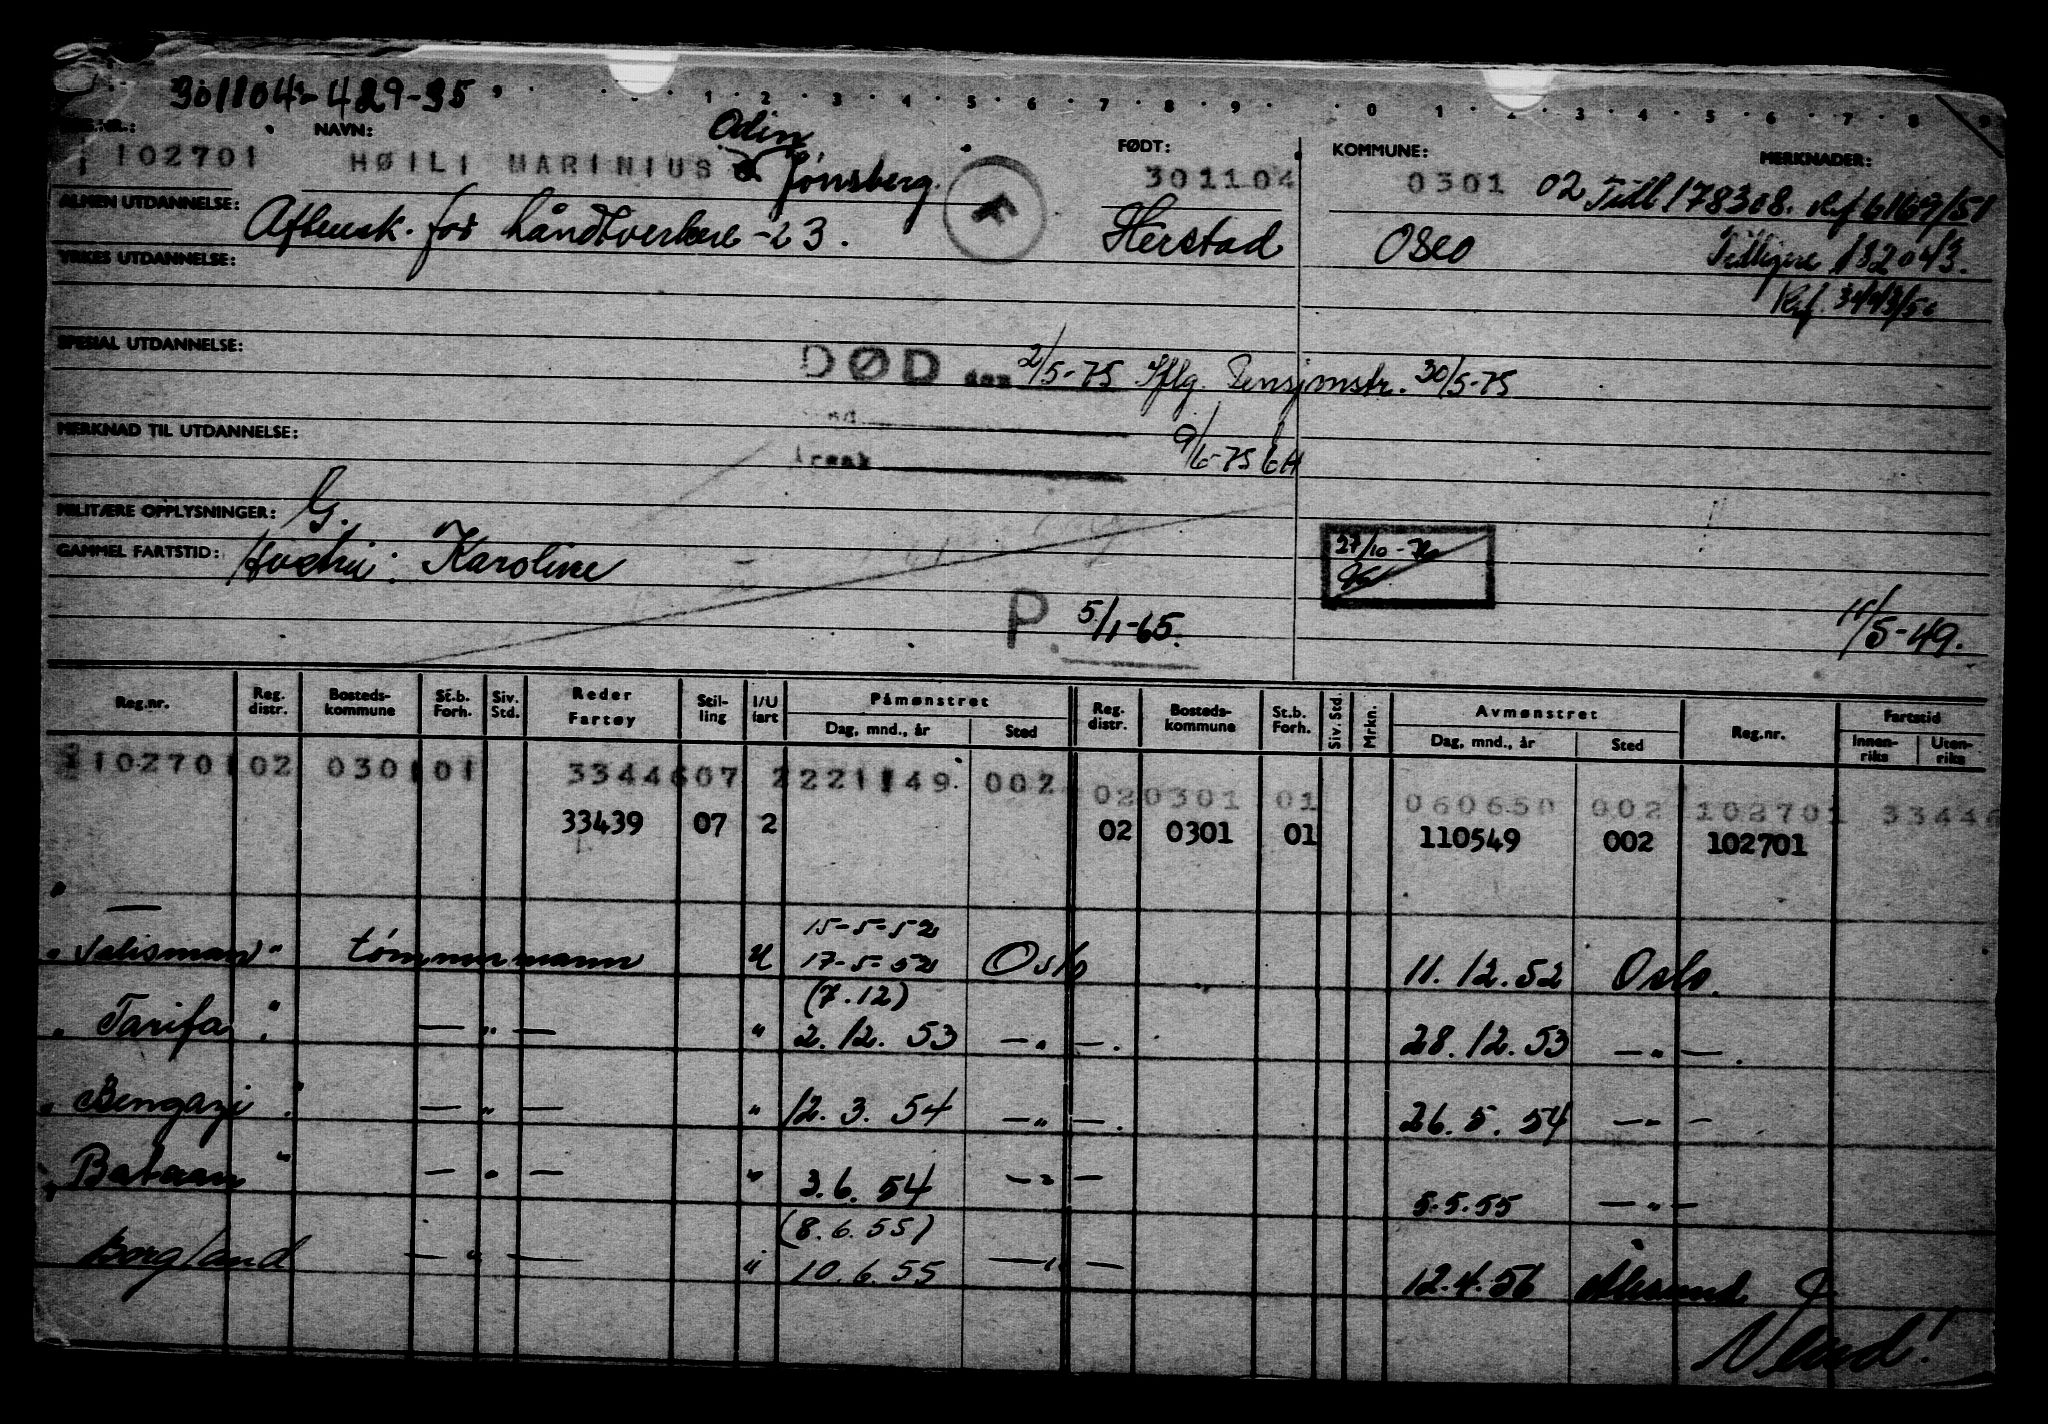 301104-429-35
1 2 3 4 5 6 7 8 9 0 1 2 3 4 5 6 7 8 9
NAVN: Odin FØDT: KOMMUNE: MERKNADER:
102701 HØILI MARINIUS Jønsberg. F 301104 0301 02 Till 178308. Ref 6169/51
ALMEN UTDANNELSE: Aftensk. for håndtverkere -23. Herstad Oslo Tidligere 182043.
YRKES UTDANNELSE:
SPESIAL UTDANNELSE: DØD den 2/5-75 Iflg. Pensjonstr. 30/5-75
MERKNAD TIL UTDANNELSE: 9/6-75
Årsak
MILITÆRE OPPLYSNINGER: G.
GAMMEL FARTSTID: Hustru: Karoline 27/10-
P. 5/1-65. 11/5-49.
Reg.nr. Reg. distr. Bosteds-kommune St.b. Forh. Siv. Std. Reder Fartøy Stil-ling I/U fart Påmønstret Dag, mnd., år Sted Reg. distr. Bosteds-kommune St.b. Forh. Siv. Std. Mrkn. Avmønstret Dag, mnd., år Sted Reg.nr. Fartstid Innen-riks Uten-riks
102701 02 0301 01 33446 07 2 221149 002 02 0301 01 060650 002 102701 33446
33439 07 2 02 0301 01 110549 002 102701
15-5-52
"Talisman" tømmermann U 17-5-52 Oslo 11.12.52 Oslo.
(7.12)
"Tarifa" — " — " 2.12.53 — " —. 28.12.53 — " —.
"Bengazi" — " — " 12.3.54 — " —. 26.5.54 — " —
"Bataan" — " — " 3.6.54 — " — 5.5.55 — " —
(8.6.55)
Borgland — " — " 10.6.55 — " — 12.4.56 Ålesund
Vend!